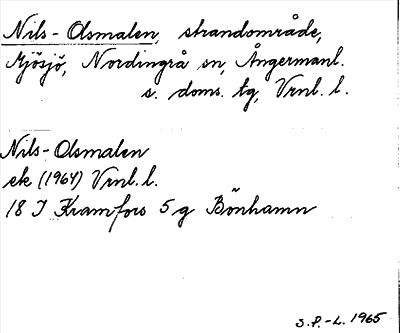 Nils-Olsmalen, strandområde,
Mjösjö, Nordingrå sn, Ångermanl.
s. doms. tg, Vrnl. l.
Nils-Olsmalen
ek (1964) Vrnl. l.
18 I Kramfors 5 g Bönhamn
S.P.-L. 1965